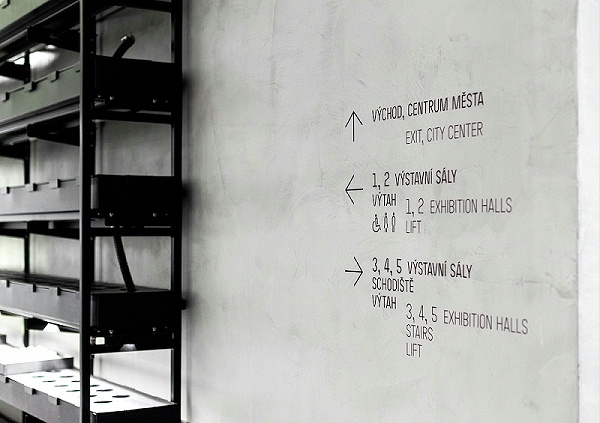 VÝCHOD, CENTRUM MĚSTA
EXIT, CITY CENTER
1, 2 VÝSTAVNÍ SÁLY
VÝTAH
1, 2 EXHIBITION HALLS
LIFT
3, 4, 5 VÝSTAVNÍ SÁLY
SCHODIŠTĚ
VÝTAH
3, 4, 5 EXHIBITION HALLS
STAIRS
LIFT